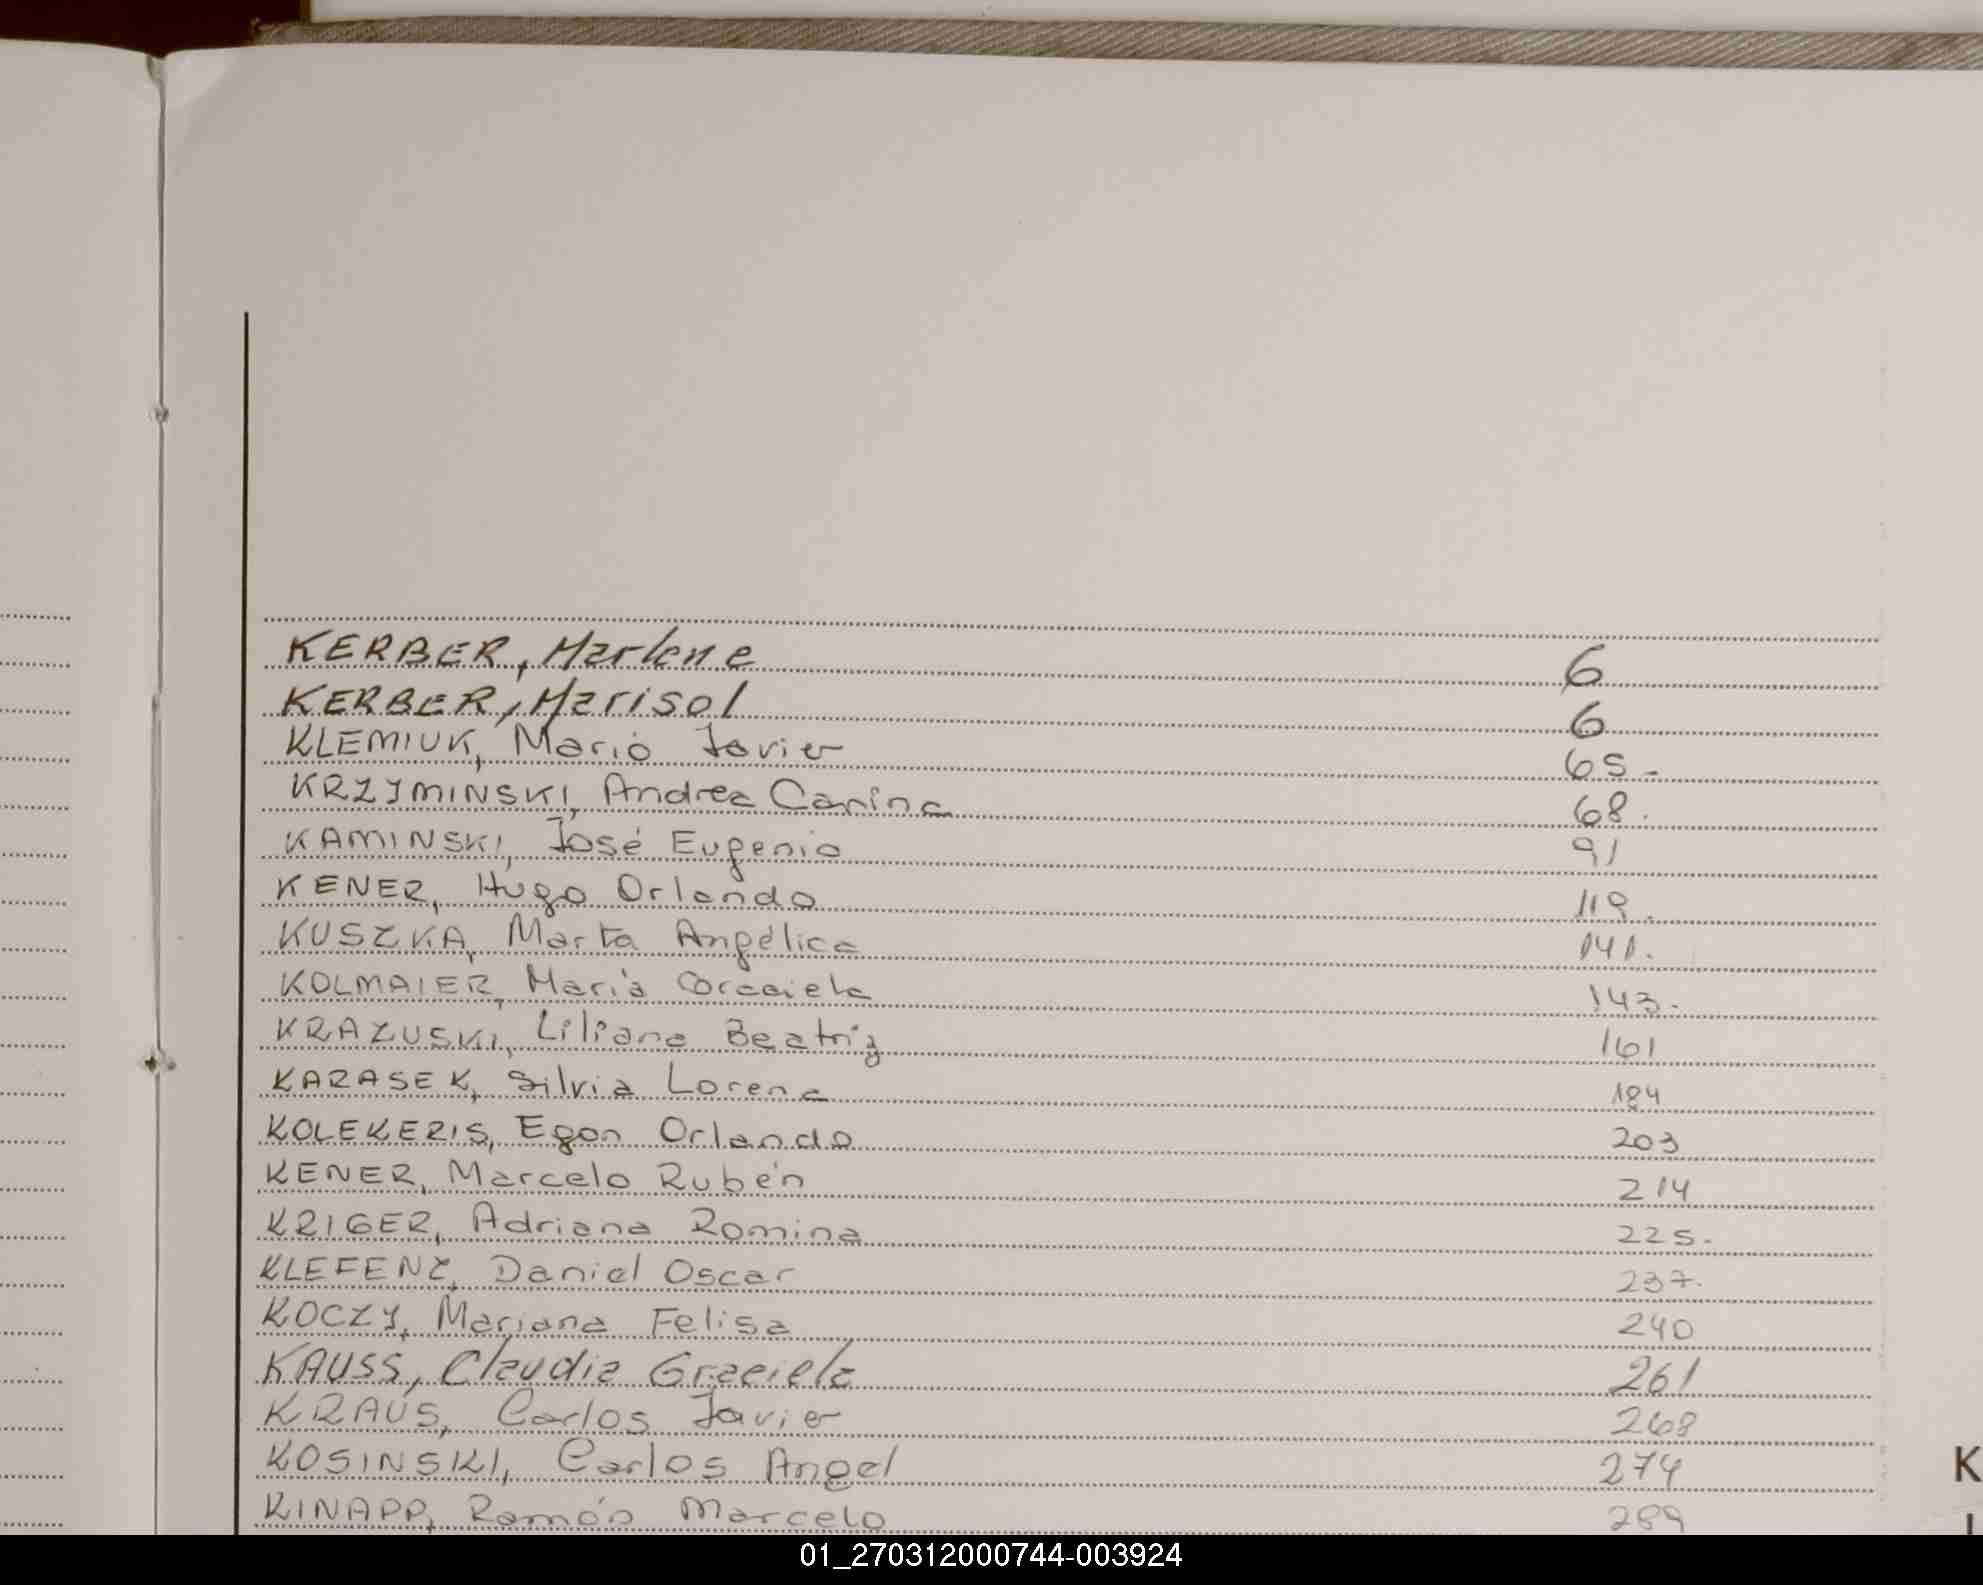 KERBER, Marlene 6
KERBER, Marisol 6
KLEMIUK, Mario Javier 65.-
KRZYMINSKI, Andrea Carina 68.
KAMINSKI, José Eugenio 91
KENER, Hugo Orlando 119.
KUSZKA, Marta Angélica 141.
KOLMAIER, María Graciela 143.-
KRAZUSKI, Liliana Beatriz 161
KARASEK, Silvia Lorena 184
KOLEKERIS, Egon Orlando 203
KENER, Marcelo Rubén 214
KRIGER, Adriana Romina 225.-
KLEFENZ, Daniel Oscar 237.
KOCZY, Mariana Felisa 240
KAUSS, Claudia Graciela 261
KRAUS, Carlos Javier 268
KOSINSKI, Carlos Angel 274
K
KINAPP, Ramón Marcelo 289
01_270312000744-003924